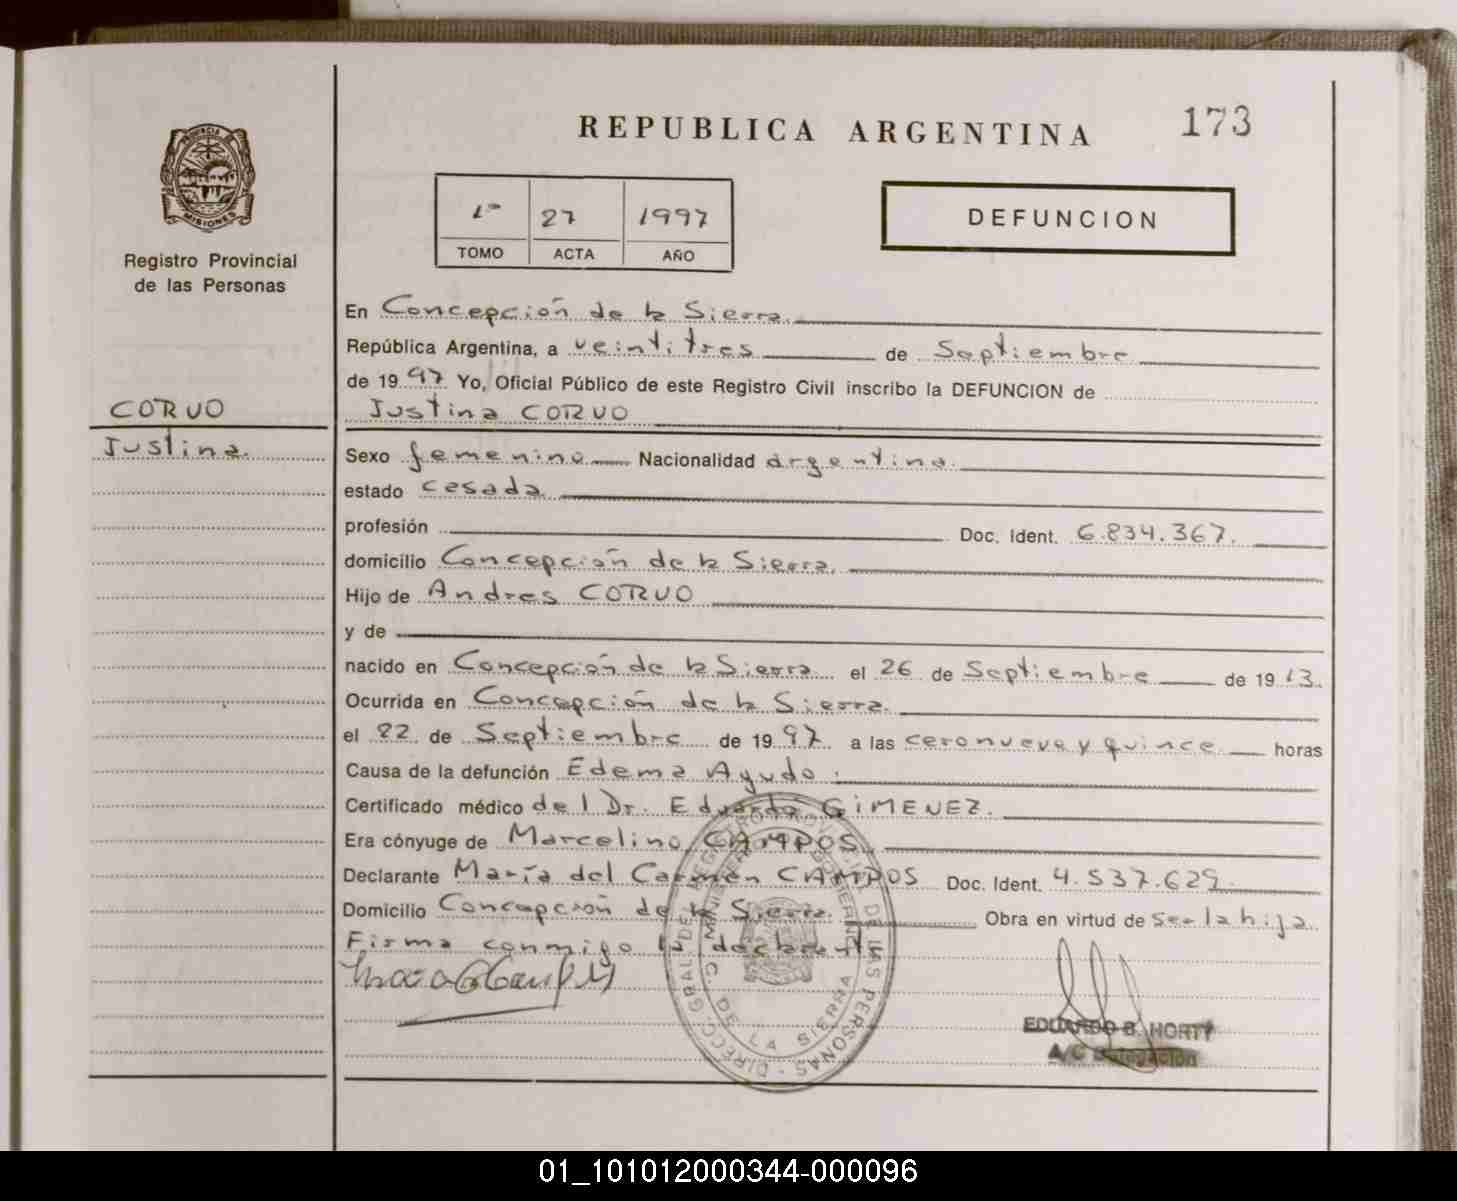 REPUBLICA ARGENTINA
173
PROVINCIA DE
MISIONES
Registro Provincial
de las Personas
1º 27 1997
TOMO ACTA AÑO
DEFUNCION
En Concepción de la Sierra
República Argentina, a veintitres de Septiembre
de 1997 Yo, Oficial Público de este Registro Civil inscribo la DEFUNCION de
Justina CORVO
CORVO
Justina
Sexo femenino Nacionalidad argentina
estado casada
profesión Doc. Ident. 6.834.367.
domicilio Concepción de la Sierra.
Hijo de Andres CORVO
y de
nacido en Concepción de la Sierra el 26 de Septiembre de 1913.
Ocurrida en Concepción de la Sierra.
el 22 de Septiembre de 1997 a las cero nueve y quince horas
Causa de la defunción Edema Agudo.
Certificado médico del Dr. Eduardo GIMENEZ.
Era cónyuge de Marcelino CAMPOS.
Declarante María del Carmen CAMPOS Doc. Ident. 4.537.629.
Domicilio Concepción de la Sierra. Obra en virtud de ser la hija.
Firma conmigo la declarante
DIRECC. GRAL. DEL REGISTRO PROVINCIAL DE LAS PERSONAS
C. DE LA SIERRA
EDUARDO B. HORTY
A/C Delegación
01_101012000344-000096